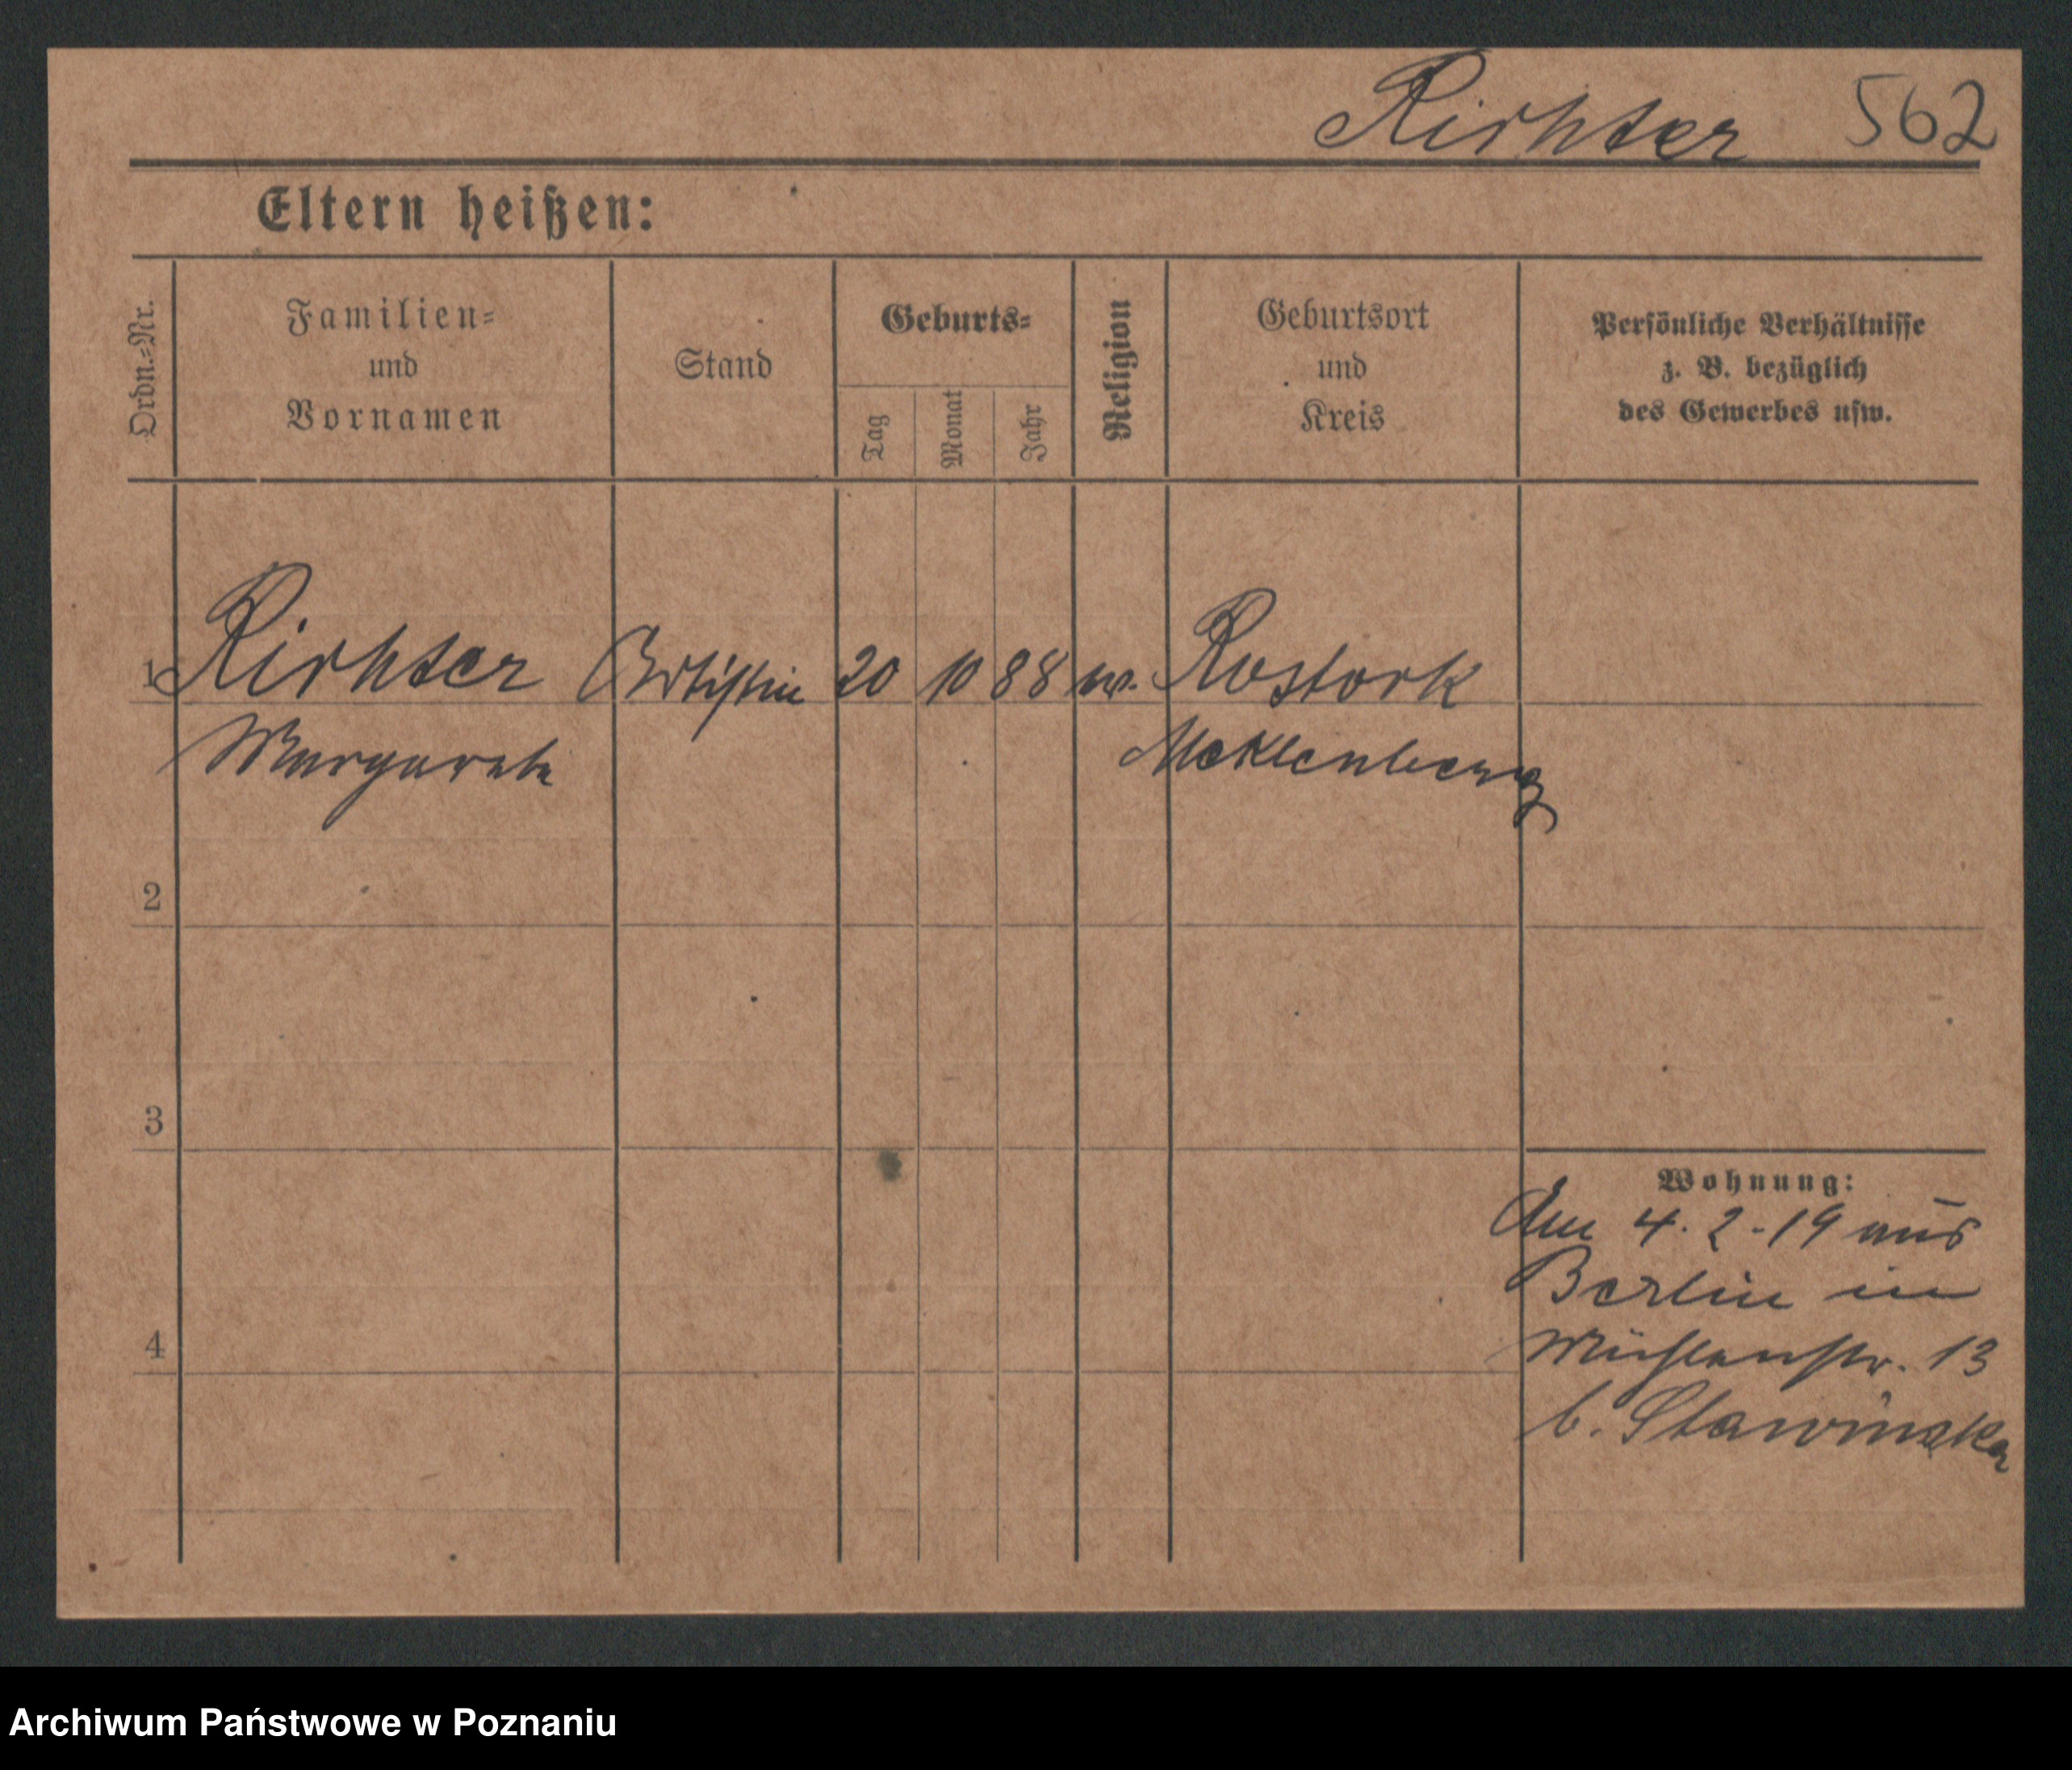 Richter 562
Eltern heißen:
Ordn.=Nr.
Familien=
und
Vornamen
Stand
Geburts=
Tag
Monat
Jahr
Religion
Geburtsort
und
Kreis
Persönliche Verhältnisse
z. B. bezüglich
des Gewerbes usw.
1 Richter Artistin 20 10 88 Rostock
Margarete Meklenberg
2
3
Wohnung:
Am 4.2-19 aus
Berlin in
4 Mühlenstr. 13
b. Stawinska
Archiwum Państwowe w Poznaniu